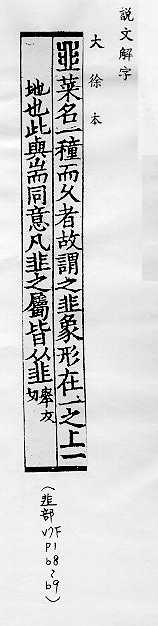 說文解字
大徐本
韭菜名一種而久者故謂之韭象形在一之上一
地也此與耑同意凡韭之屬皆从韭舉友切
(韭部 V7F P1 b8~b9)